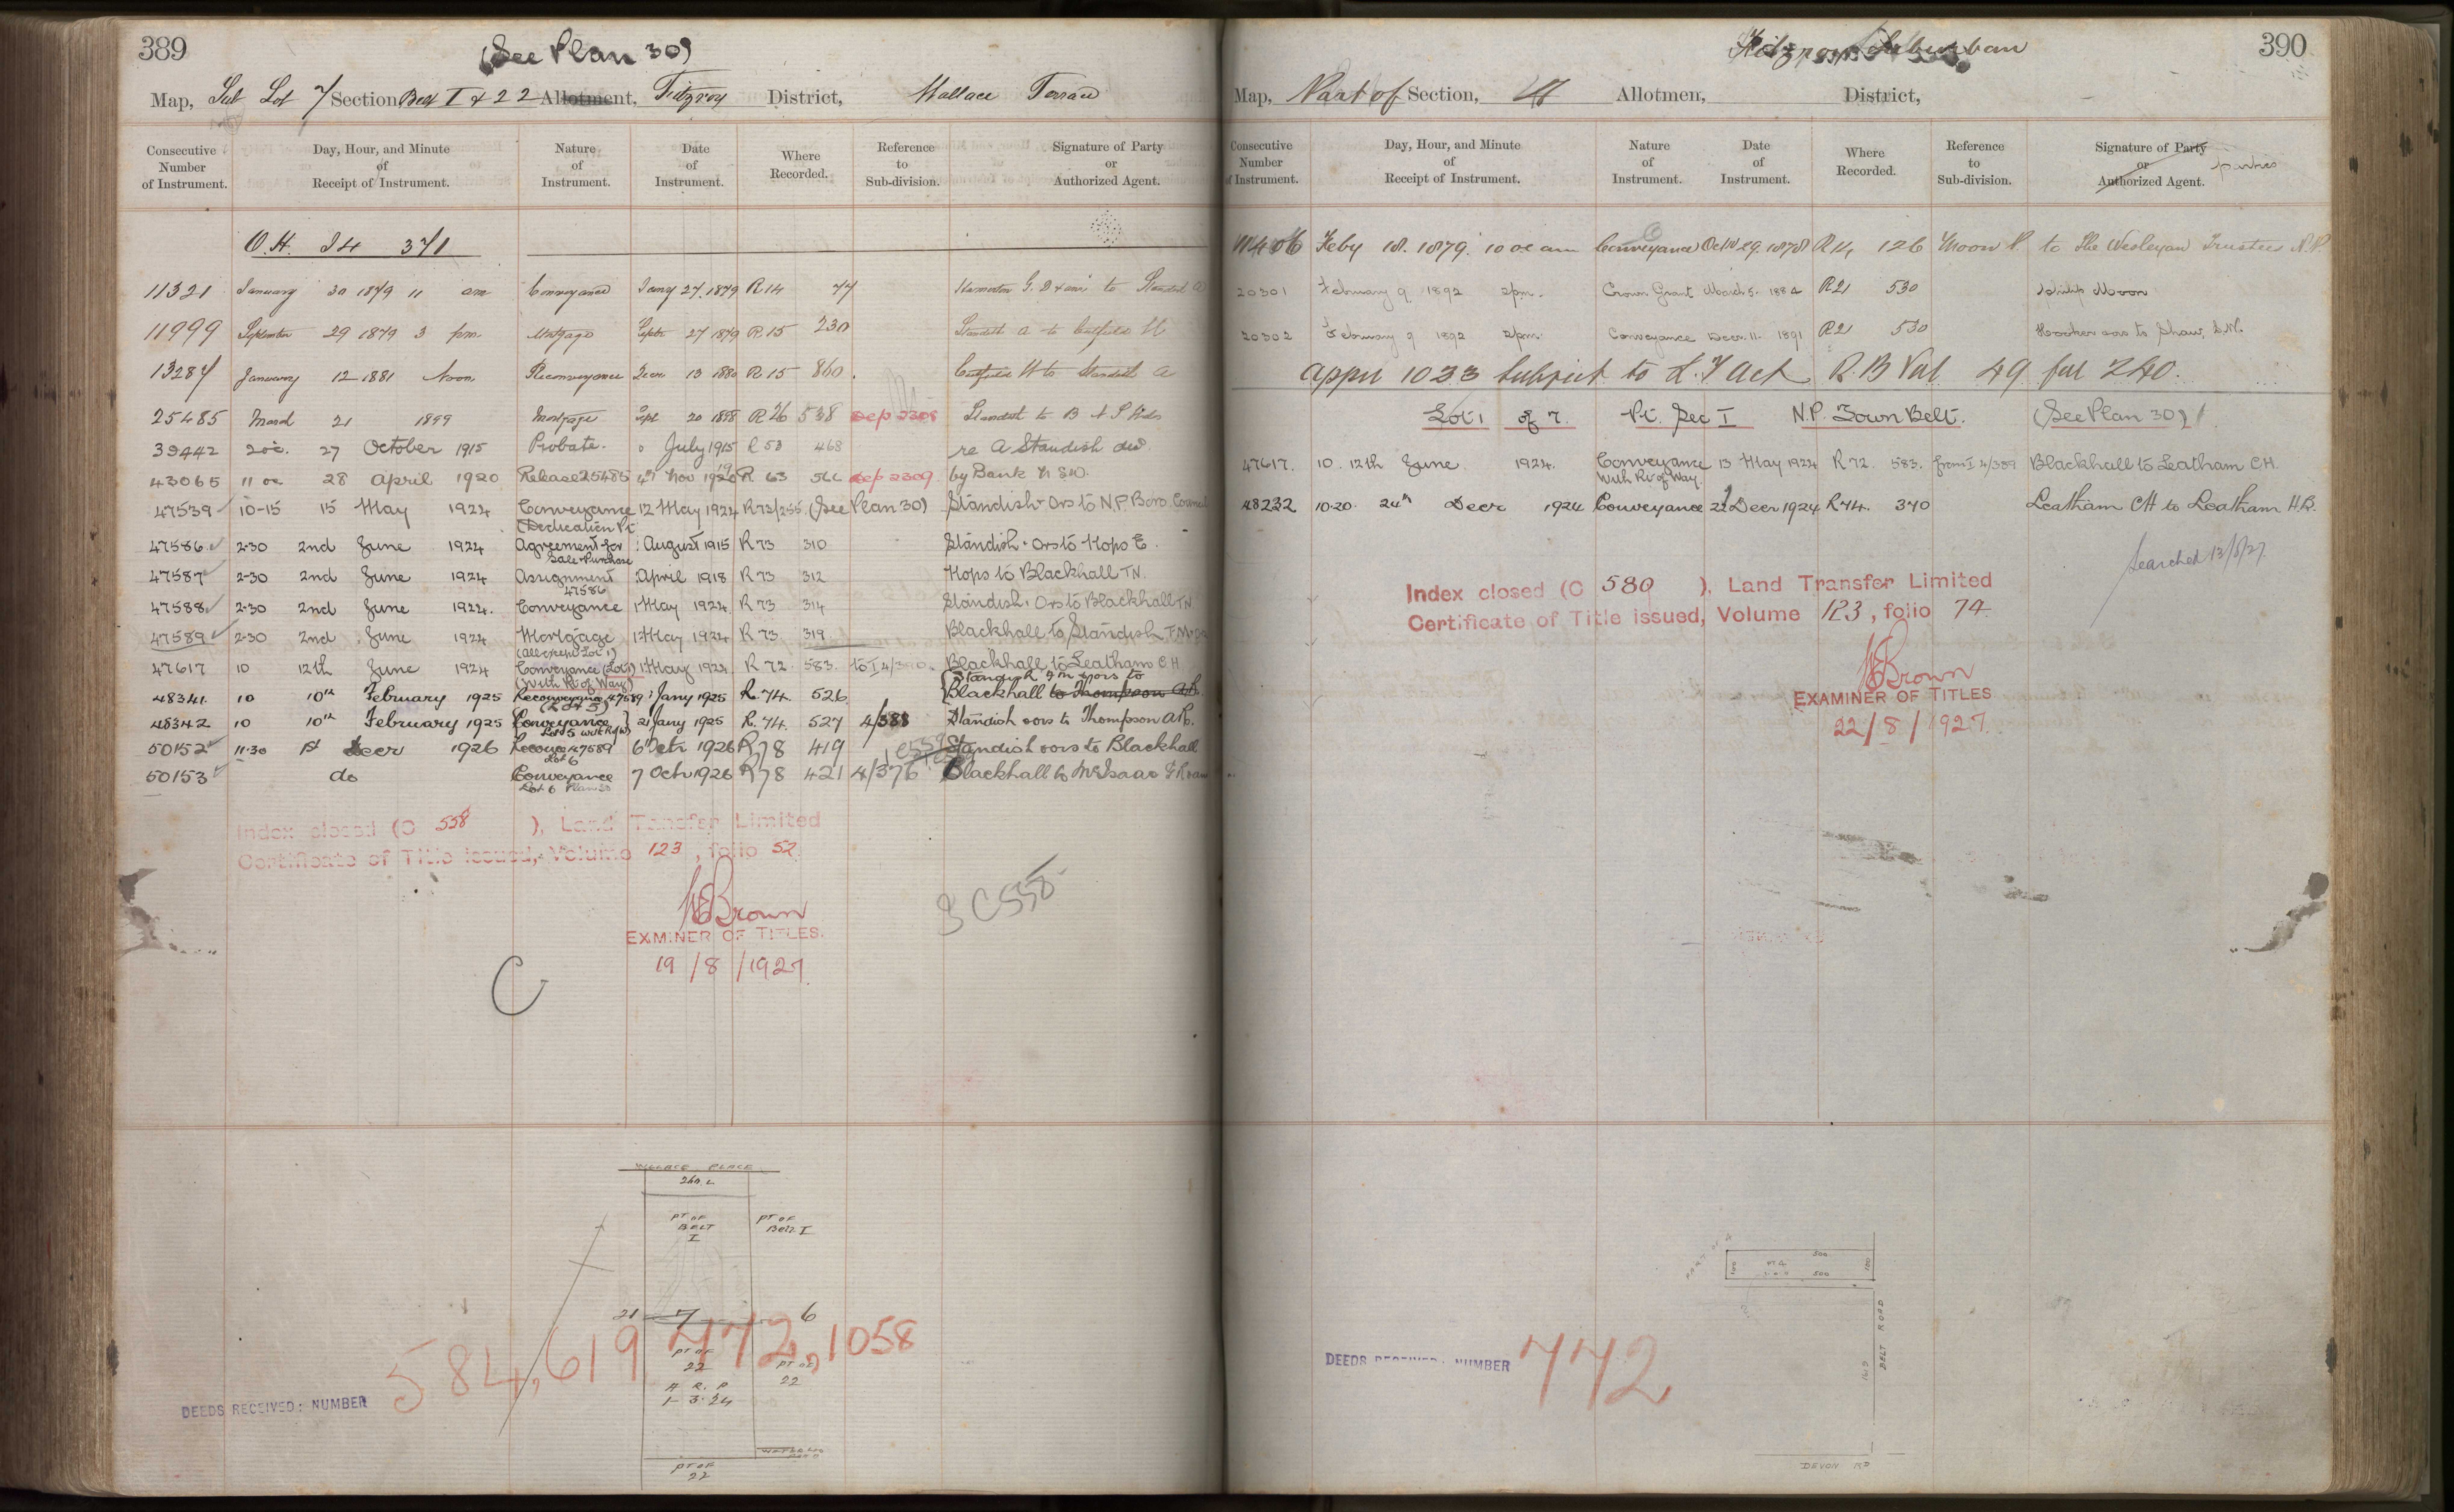 389
(See Plan 30)
Map, Sub Lot 7 Section Belt I & 22 Allotment, Fitzroy District, Wallace Terrace
Consecutive Number of Instrument. Day, Hour, and Minute of Receipt of Instrument. Nature of Instrument. Date of Instrument. Where Recorded. Reference to Sub-division. Signature of Party or Authorized Agent.
O.H. I4 371
11321 January 30 1879 11 am Conveyance Jany 27. 1879 R14 77 to Standish A
11999 September 29 1879 3 pm. Mortgage Septr 27 1879 R15 230 Standish A to Catfield H
13287 January 12 1881 Noon Reconveyance Decr 13 1880 R15 860. Catfield H to Standish A
25485 March 21 1899 Mortgage Sept 20 1898 R26 538 Dep 2308 Standish to B
39442 2 o'c. 27 October 1915 Probate. July 1915 R53 468 re A Standish decd.
43065 11 oc 28 April 1920 Release 25485 4th Nov 1920 R 63 566 Dep 2309. by Bank N S W.
47539 10-15 15 May 1924 Conveyance 12 May 1924 R73/255. (See Plan 30) Standish & Ors to N.P. Boro Council
(Dedication Pt
47586 2.30 2nd June 1924 Agreement for August 1915 R73 310 Standish & Ors to Hops E.
Sale & Purchase
47587 2-30 2nd June 1924 Assignment April 1918 R73 312 Hops to Blackhall T.N.
47586
47588 2.30 2nd June 1924. Conveyance May 1924. R73 314 Standish & Ors to Blackhall T.N.
47589 2-30 2nd June 1924 Mortgage May 1924 R73 319 Blackhall to Standish
(all except Lot 1)
47617 10 12th June 1924 Conveyance (Lot 1) May 1924 R 72. 583. to I4/390. Blackhall to Leatham C H
(With Rt of Way)
48341. 10 10th February 1925 Reconveyance 47589 Jany 1925 R. 74. 526 Blackhall to Thompson A.R.
(Lot 5)
48342 10 10th February 1925 Conveyance 21 Jany 1925 R. 74. 527 4/388 Standish & ors to Thompson A.R.
Lot 5 with R of W
50152 11.30 1st Decr 1926 47589 6 Octr 1926 R78 419 Standish & ors to Blackhall
Lot 6
50153 do Conveyance 7 Octr 1926 R78 421 4/376 Blackhall to McIsaac
Lot 6 Plan 30
Index closed (C 558 ), Land Transfer Limited
Certificate of Title issued, Volume 123, folio 52.
Brown
EXAMINER OF TITLES.
19/8/1927
C558
C
WALLACE PLACE
260. L
PT OF BELT I
PT OF BELT I
21 7 6
PT OF 22
PT OF 22
A R. P
1- 3. 24
PT OF 22
584, 619 472, 1058
DEEDS RECEIVED: NUMBER
390
Fitzroy Suburban
Map, Part of Section, Allotmen, District,
Consecutive Number of Instrument. Day, Hour, and Minute of Receipt of Instrument. Nature of Instrument. Date of Instrument. Where Recorded. Reference to Sub-division. Signature of Party or Authorized Agent. parties
11406 Feby 18. 1879. 10 oc am Conveyance Octr 29. 1878 R14 126 Moon P. to The Wesleyan Trustees N.P.
20301 February 9 1892 2pm. Crown Grant March 5. 1884 R21 530 Philip Moon
20302 February 9 1892 2pm. Conveyance Decr. 11. 1891 R21 530 Hooker & ors to Shaw, S.W.
Appn 1033 Subject to L. T Act R. B Vol 49 fol 240.
Lot 1 of 7. Pt. Sec I N.P. Town Belt. (See Plan 30)
47617. 10. 12th June 1924. Conveyance 13 May 1924 R 72. 583. from I 4/389 Blackhall to Leatham C.H.
With Rt of Way.
48232 10.20. 24th Decr 1924 Conveyance 22 Decr 1924 R74. 370 Leatham C H to Leatham H.B.
Searched 13/8/27.
Index closed (C 580 ), Land Transfer Limited
Certificate of Title issued, Volume 123, folio 74.
Brown
EXAMINER OF TITLES
22/8/1927.
PART OF 4
500
PT 4
500
100
BELT ROAD
DEVON RD
DEEDS RECEIVED: NUMBER 772